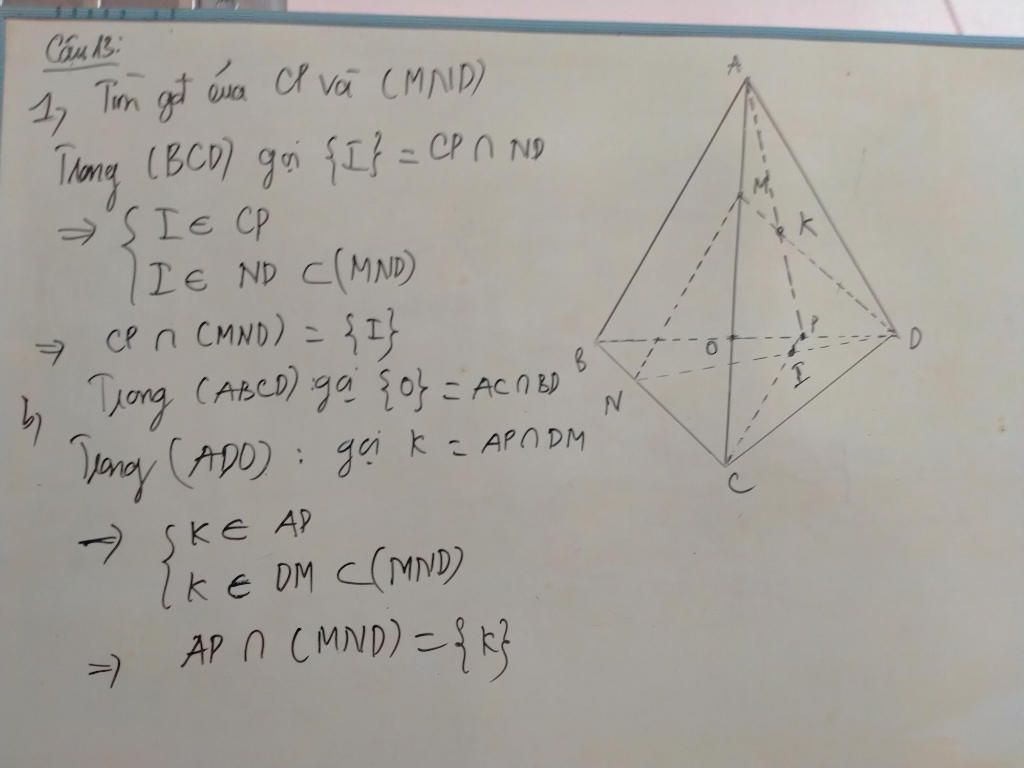 Câu 13:
1, Tìm gđ của CP và (MND)
Trong (BCD) gọi {I} = CP ∩ ND
⇒ { I ∈ CP
I ∈ ND ⊂ (MND)
⇒ CP ∩ (MND) = {I}
b, Trong (ABCD): gọi {O} = AC ∩ BD
Trong (ADO): gọi K = AP ∩ DM
⇒ { K ∈ AP
K ∈ DM ⊂ (MND)
⇒ AP ∩ (MND) = {K}
A
M
K
B
O
P
D
I
N
C